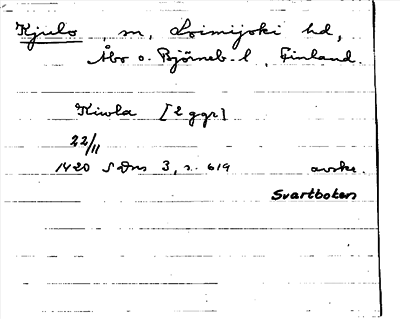 Kjulo, sn, Loimijoki hd,
Åbo o. Björneb. l, Finland.
Kiwla [2 ggr]
22/11
1420 SDns 3, s. 619 avskr.
Svartboken